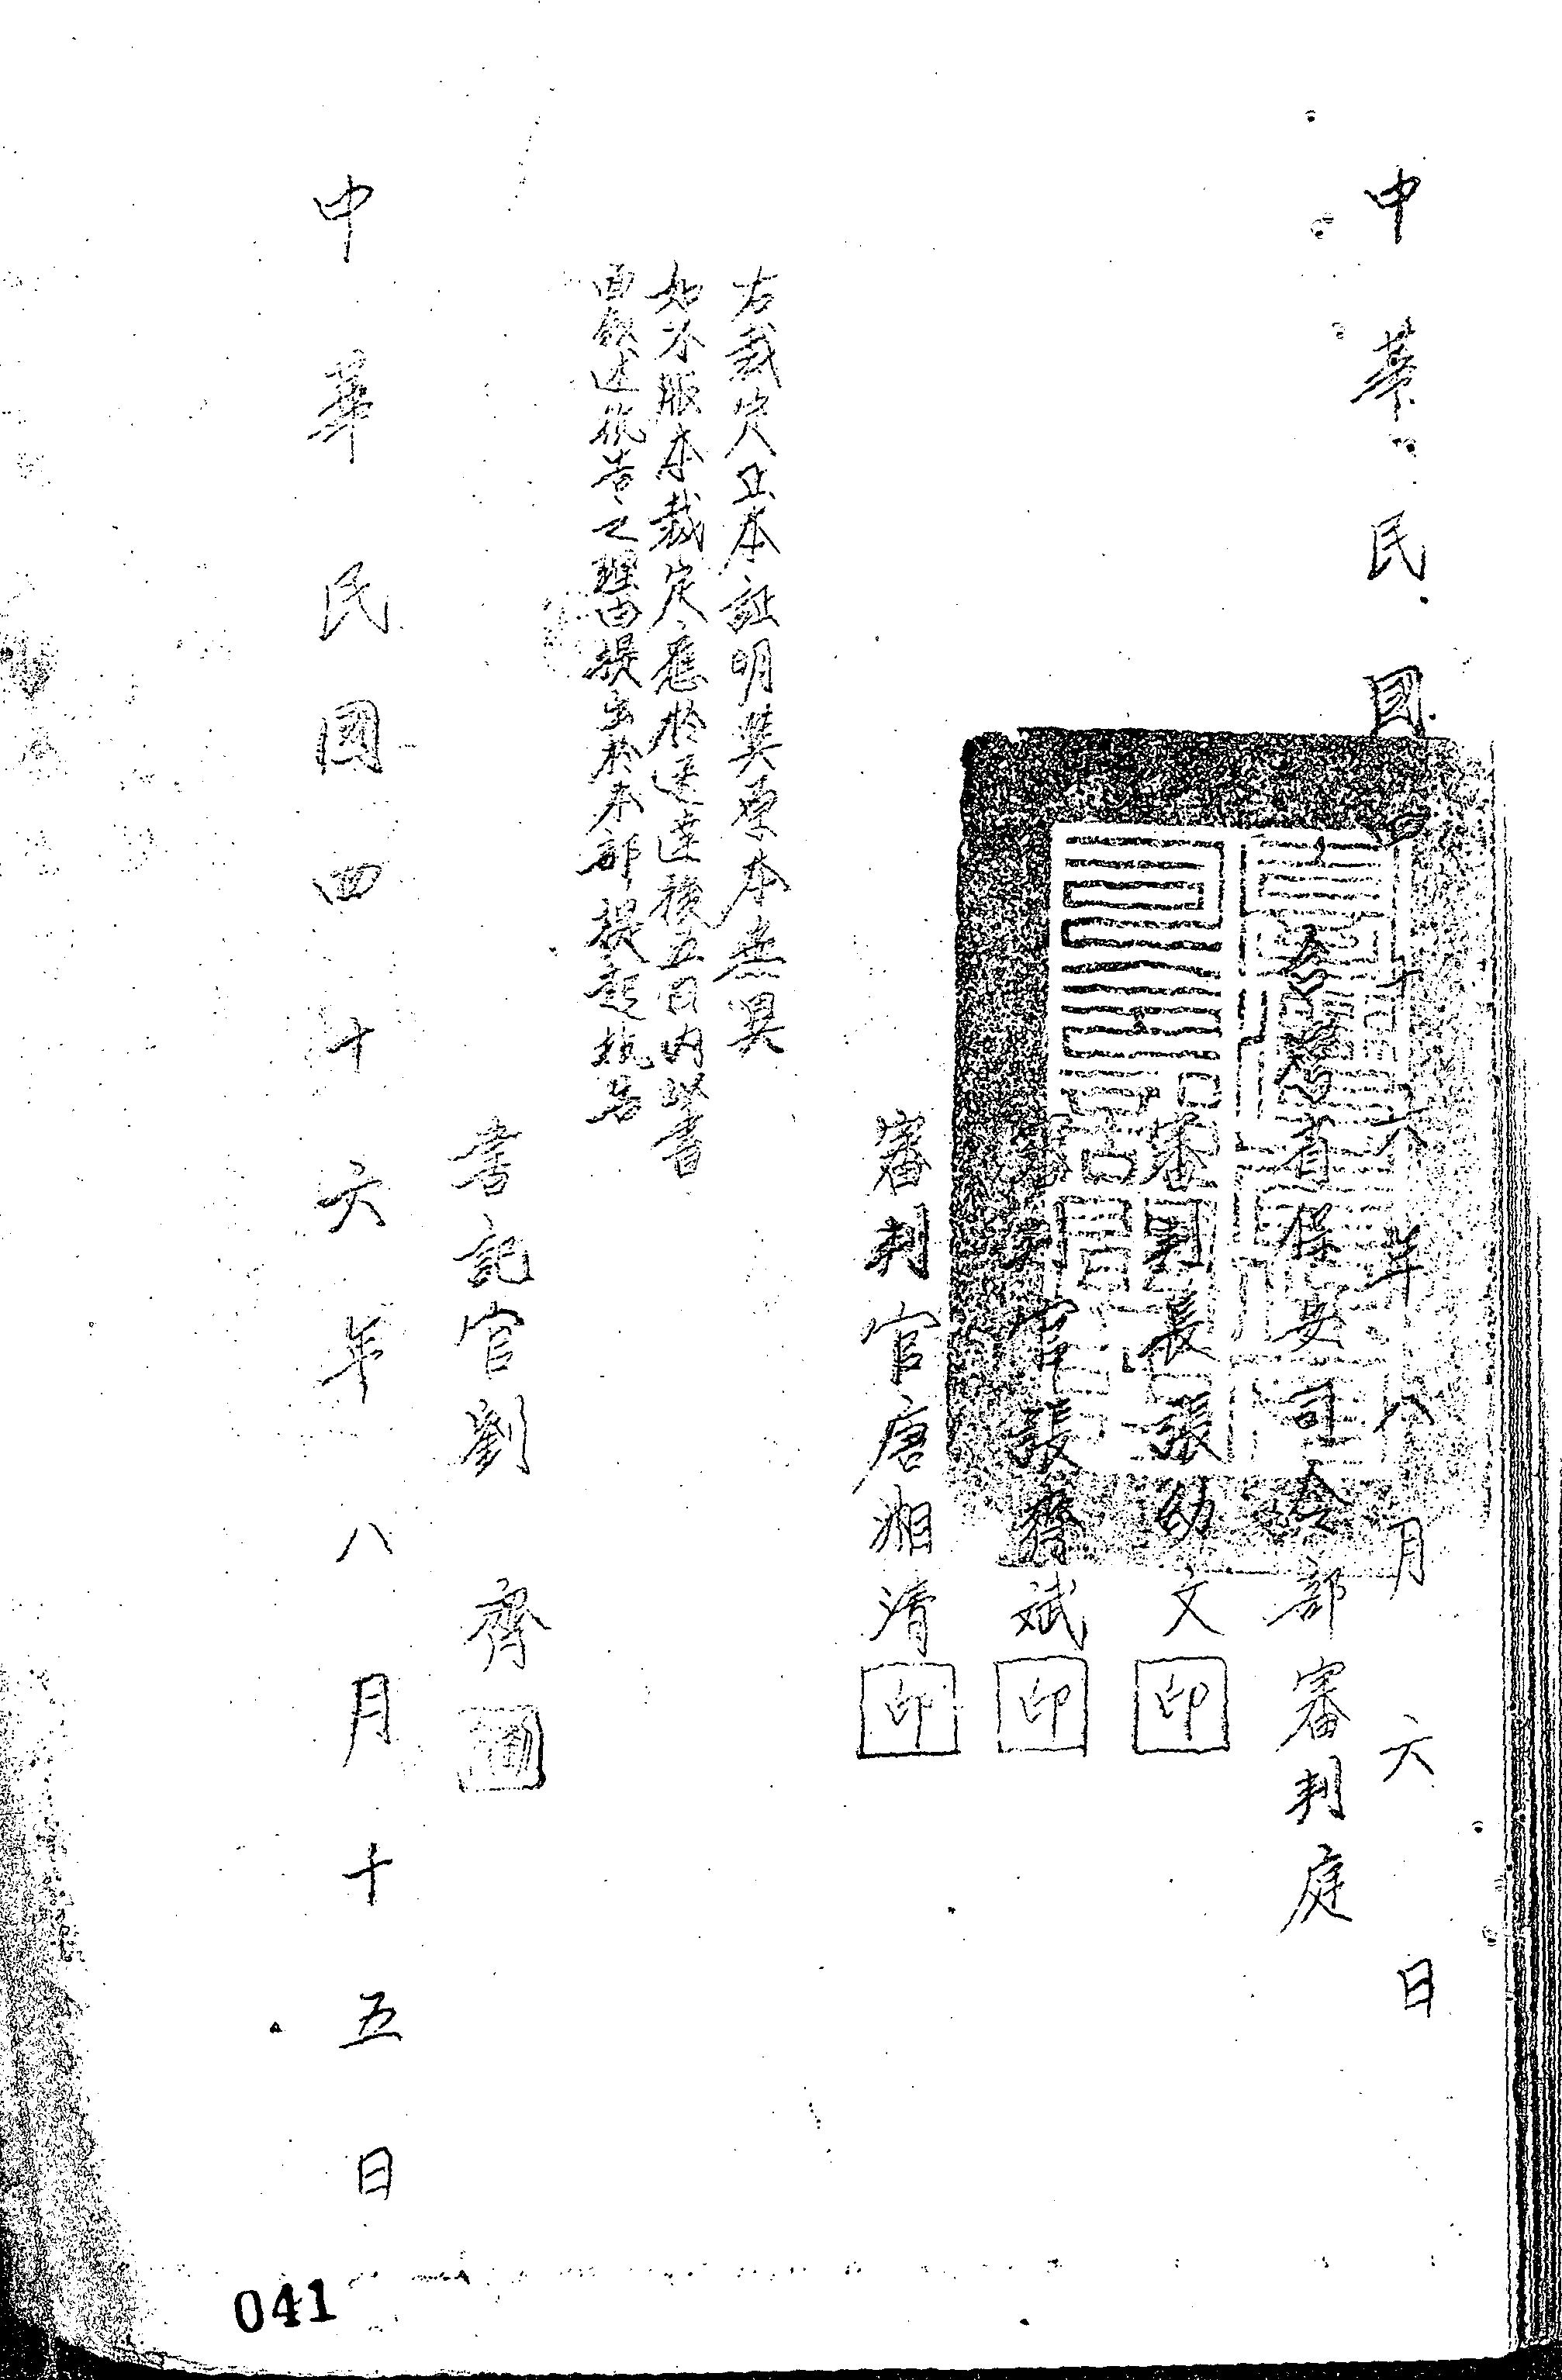 中華民國四十六年八月六日
台灣省保安司令部審判庭
審判長張幼文印
審判官張齊斌印
審判官唐湘清印
右裁定正本証明與原本無異
如不服本裁定應於送達後五日內以書
面敘述抗告之理由提出於本部提起抗告
書記官劉齊
中華民國四十六年八月十五日
041